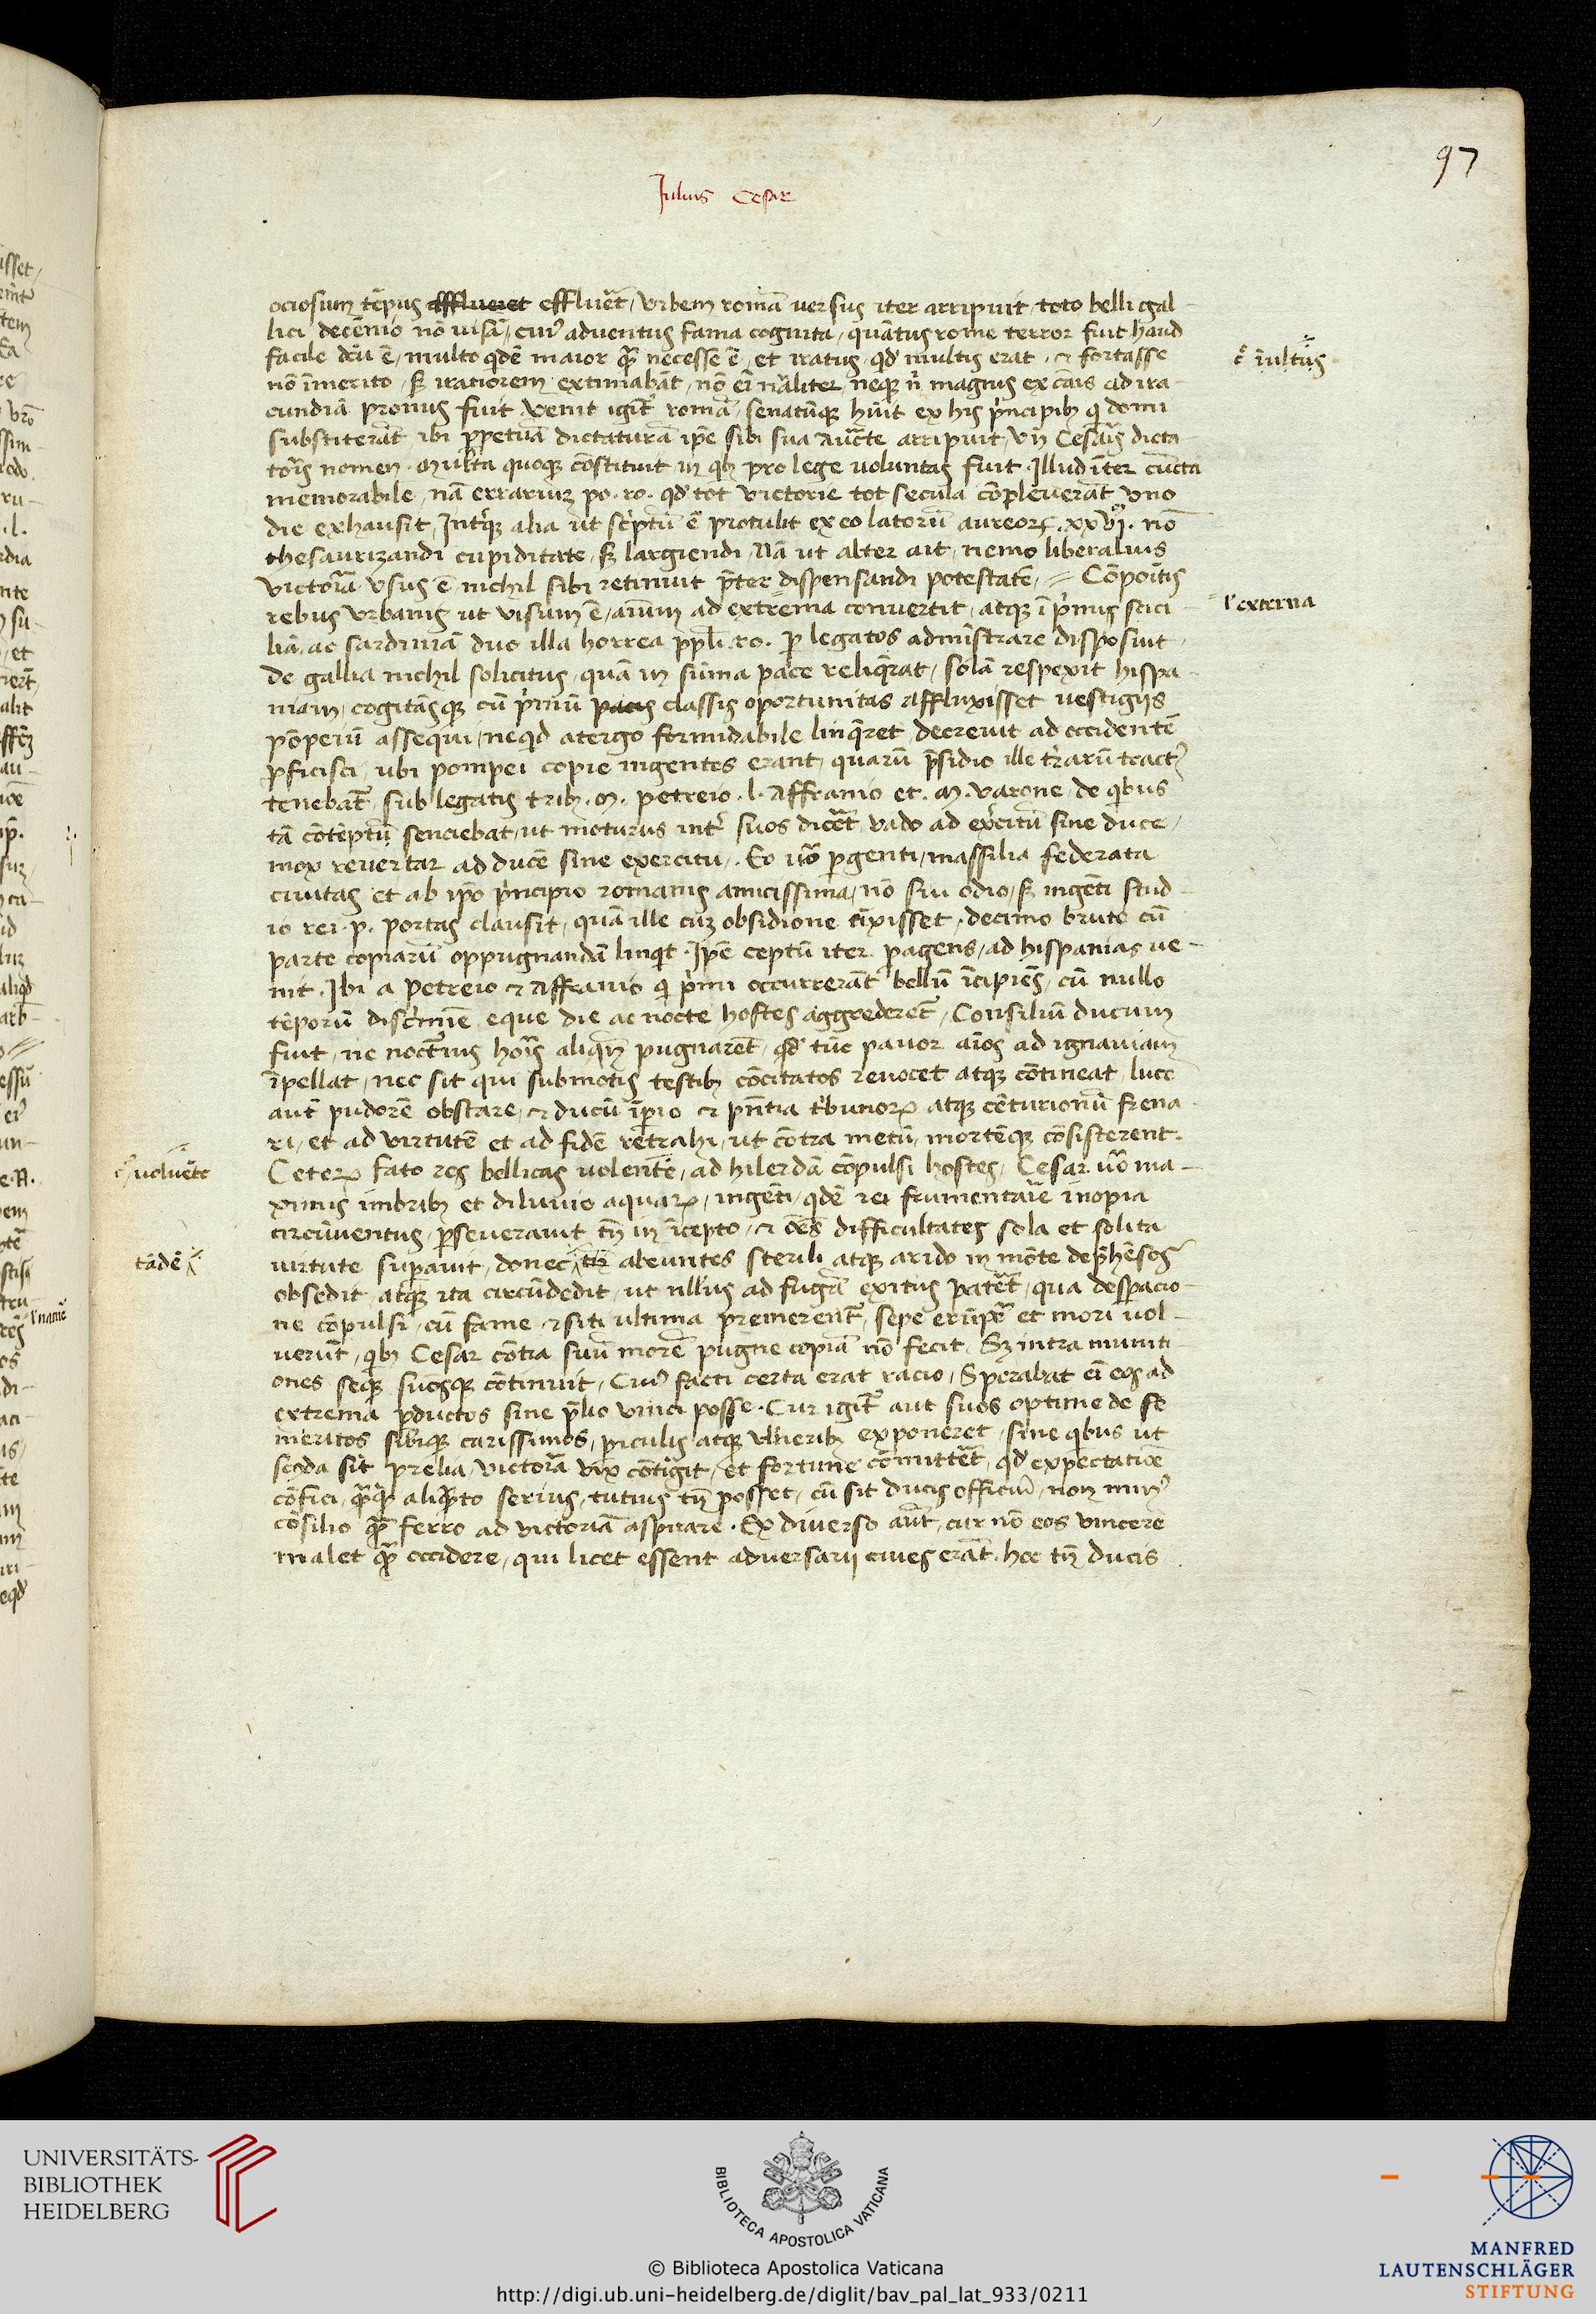 97
Iulius Cesar
ociosum tẽpus affflueret effluãt, vrbem romã versus iter arripuit toto belli gal-
lici decẽnio nõ uisã, cuiꝰ aduentus fama cognita, quãtus rome terror fuit haud
facile dcũ ẽ, multo qͥdẽ maior qͣ̃ necesse ẽ, et iratus qd̛ multis erat, ⁊ fortasse
c̃ ĩultus
nõ ĩmerito, sꝫ iratiorem extimabãt, nõ eĩ nãliter, neqꝫ ñ magnis ex cãis ad ira-
cundiã pronus fuit Venit igit̃ romã, senatũqꝫ hũit ex his pͥncipibꝫ q̃ domi
substiterãt ibi ꝑpetuã dictaturã ip̃e sibi sua auc̃te arripuit, vñ Cesãis dicta-
tõis nomen. Multa quoqꝫ cõstituit in qͥbꝫ pro lege uoluntas fuit. Illud ĩter cũcta
memorabile, nã errariuꝫ po. ro. qd̛ tot victorie tot secula cõpleuerãt vno
die exhausit, Int̃qꝫ alia ut scͥptũ ẽ protulit ex eo laterũ aureoꝝ. xxvj. nõ
thesaurizandi cupiditate, sꝫ largiendi, Nã ut alter ait, nemo liberalius
victoria vsus ẽ nichil sibi retinuit p̃ter dispensandi potestatẽ, = Cõpoitis
rebus vrbanis ut visum ẽ, aĩum ad extrema conuertit, atqꝫ ĩ pͥmis sici-
l' externa
liã, ac sardiniã duo illa horrea ppl̃i. ro. ꝑ legatos admĩstrare disposuit
de gallia nichil solicitus, quã in sũma pace reliqͥrat, solã respexit hispa-
niam, cogitãsqꝫ cũ pͥmũ pacis classis oportunitas affluxisset uestigijs
põpeiũ assequi, neqͥd atergo formidabile linqͥret, decreuit ad occidentẽ
ꝓficisci, ubi pompei copie ingentes erant, quarũ p̃sidio ille tr̃arũ tractꝰ
tenebat̃, sub legatis tribꝫ. M. petreio. l. Affranio et. M. varone, de qͥbus
tã cõtẽptũ senciebat, ut moturus int̃ suos dic̃et vado ad ex̃citũ sine duce,
mox reuertar ad ducẽ sine exercitu, Eo u̾o ꝑgenti, massilia federata
ciuitas et ab ip̃o pͥncipio romanis amicissima, nõ sui odio, sꝫ ingẽti stud-
io rei. p. portas clausit, quã ille cuꝫ obsidione cĩxisset, decimo bruto cũ
parte copiarũ oppugnandã linqͥt. Ip̃e ceptũ iter ꝑagens, ad hispanias ue-
nit. Ibi a petreio ⁊ affranio q̃ pͥmi occurrerãt bellũ ĩcipiẽs, cũ nullo
tẽporũ discͥmĩe, eque die ac nocte hostes aggrederet̃, Consiliũ ducum
fuit, ne noct̃nis hõis aliqñ pugnarẽt, qd̛ tũc pauor aĩos ad ignauiam
ĩpellat, nec sit qui submotis testibꝫ cõcitatos reuocet atqꝫ cõtineat, luce
aut̃ pudorẽ obstare, ⁊ ducũ ĩꝑio ⁊ pñtia tͥbunoꝝ atqꝫ cẽturionũ frena-
ri, et ad virtutẽ et ad fidẽ retrahi, ut cõtra metũ, mortẽqꝫ cõsisterent.
c̃ uoluẽte
Ceteꝝ fato res bellicas uolente, ad hilerdã cõpulsi hostes, Cesar u̾o ma-
ximis imbribꝫ et diluuio aquaꝝ, ingẽti qͥdẽ rei frumentarie inopia
circũuentus, ꝑseuerauit tñ in ĩcepto, ⁊ oẽs difficultates sola et solita
tãdẽ
uirtute suꝑauit, donec abeuntes sterili atqꝫ arido in mõte dep̃hẽsos
obsedit, atqꝫ ita circũdedit, ut nllus ad fugã exitus patẽt, qua despacio-
ne cõpulsi, cũ fame ⁊ siti ultima premerent̃, sepe erũp̃e et mori uol-
uerũt, qͥbꝫ Cesar cõtra suũ morẽ pugne copiã nõ fecit, Sꝫ intra muniti-
ones seqꝫ suosqꝫ cõtinuit, Cuiꝰ facti certa erat racio, Sperabat eĩ eos ad
extrema ꝑductos sine p̃lio vinci posse. Cur igit̃ aut suos optime de se
meritos sibiqꝫ carissimos, ꝑiculis atqꝫ vl̃neribꝫ exponeret, sine qͥbus ut
scđa sit prelia, victoria vix cõtigit, et fortune cõmittet̃, qd̛ expectatiõe
cõfici, qͣ̃qͣ̃ aliqͣ̃to serius, tutius tñ posset, cũ sit ducis officiũ, non minꝰ
cõsilio qͣ̃ ferro ad victoriã aspirare. Ex diuerso aut̃, cur nõ eos vincere
malet qͣ̃ occidere, qui licet essent aduersarij ciues erãt. hoc tñ ducis
UNIVERSITÄTS-
BIBLIOTHEK
HEIDELBERG
BIBLIOTECA APOSTOLICA VATICANA
© Biblioteca Apostolica Vaticana
http://digi.ub.uni-heidelberg.de/diglit/bav_pal_lat_933/0211
MANFRED
LAUTENSCHLÄGER
STIFTUNG